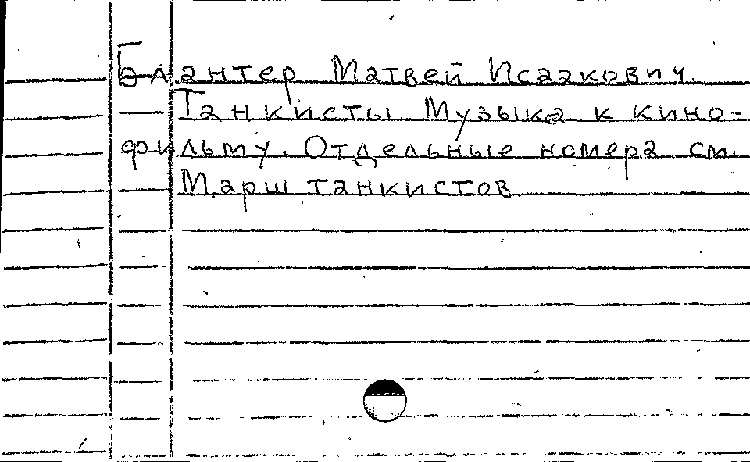 Блантер Матвей Исаакович.
Танкисты Музыка к кино-
фильму. Отдельные номера см.
Марш танкистов